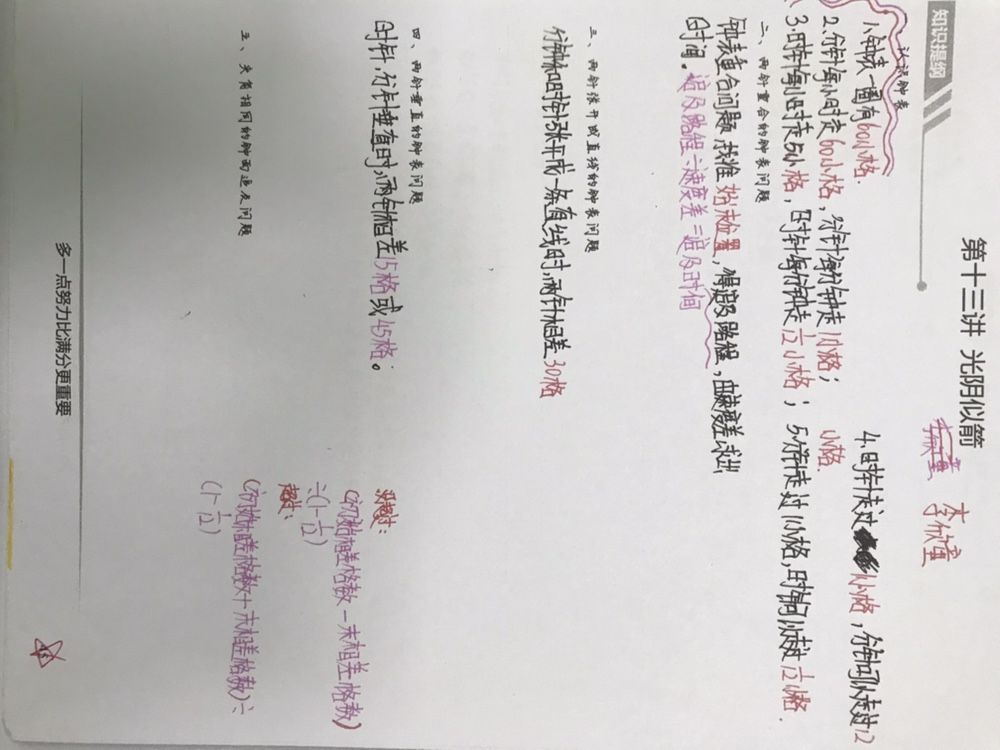 知识提纲
第十三讲 光阴似箭
李欣童
一、认识钟表
1.钟表一圈有60小格.
2.分针每小时走60小格，分针每分钟走1小格；
3.时针每小时走5小格，时针每分钟走1/12小格；
4.时针走过1小格，分针可以走过12小格.
5.分针走过1小格，时针可以走过1/12小格.
二、两针重合的钟表问题
钟表重合问题，找准始末位置，得追及路程，由速度差求出
时间。追及路程÷速度差=追及时间
三、两针张开成直线的钟表问题
分针和时针张开成一条直线时，两针相差30格
四、两针垂直的钟表问题
时针，分针垂直时，两针相差15格或45格。
没超过：
(初始相差格数－末相差格数)
÷(1-1/12)
超过：
(初始相差格数+末相差格数)÷
(1-1/12)
五、夹角相同的钟面追及问题
多一点努力比满分更重要